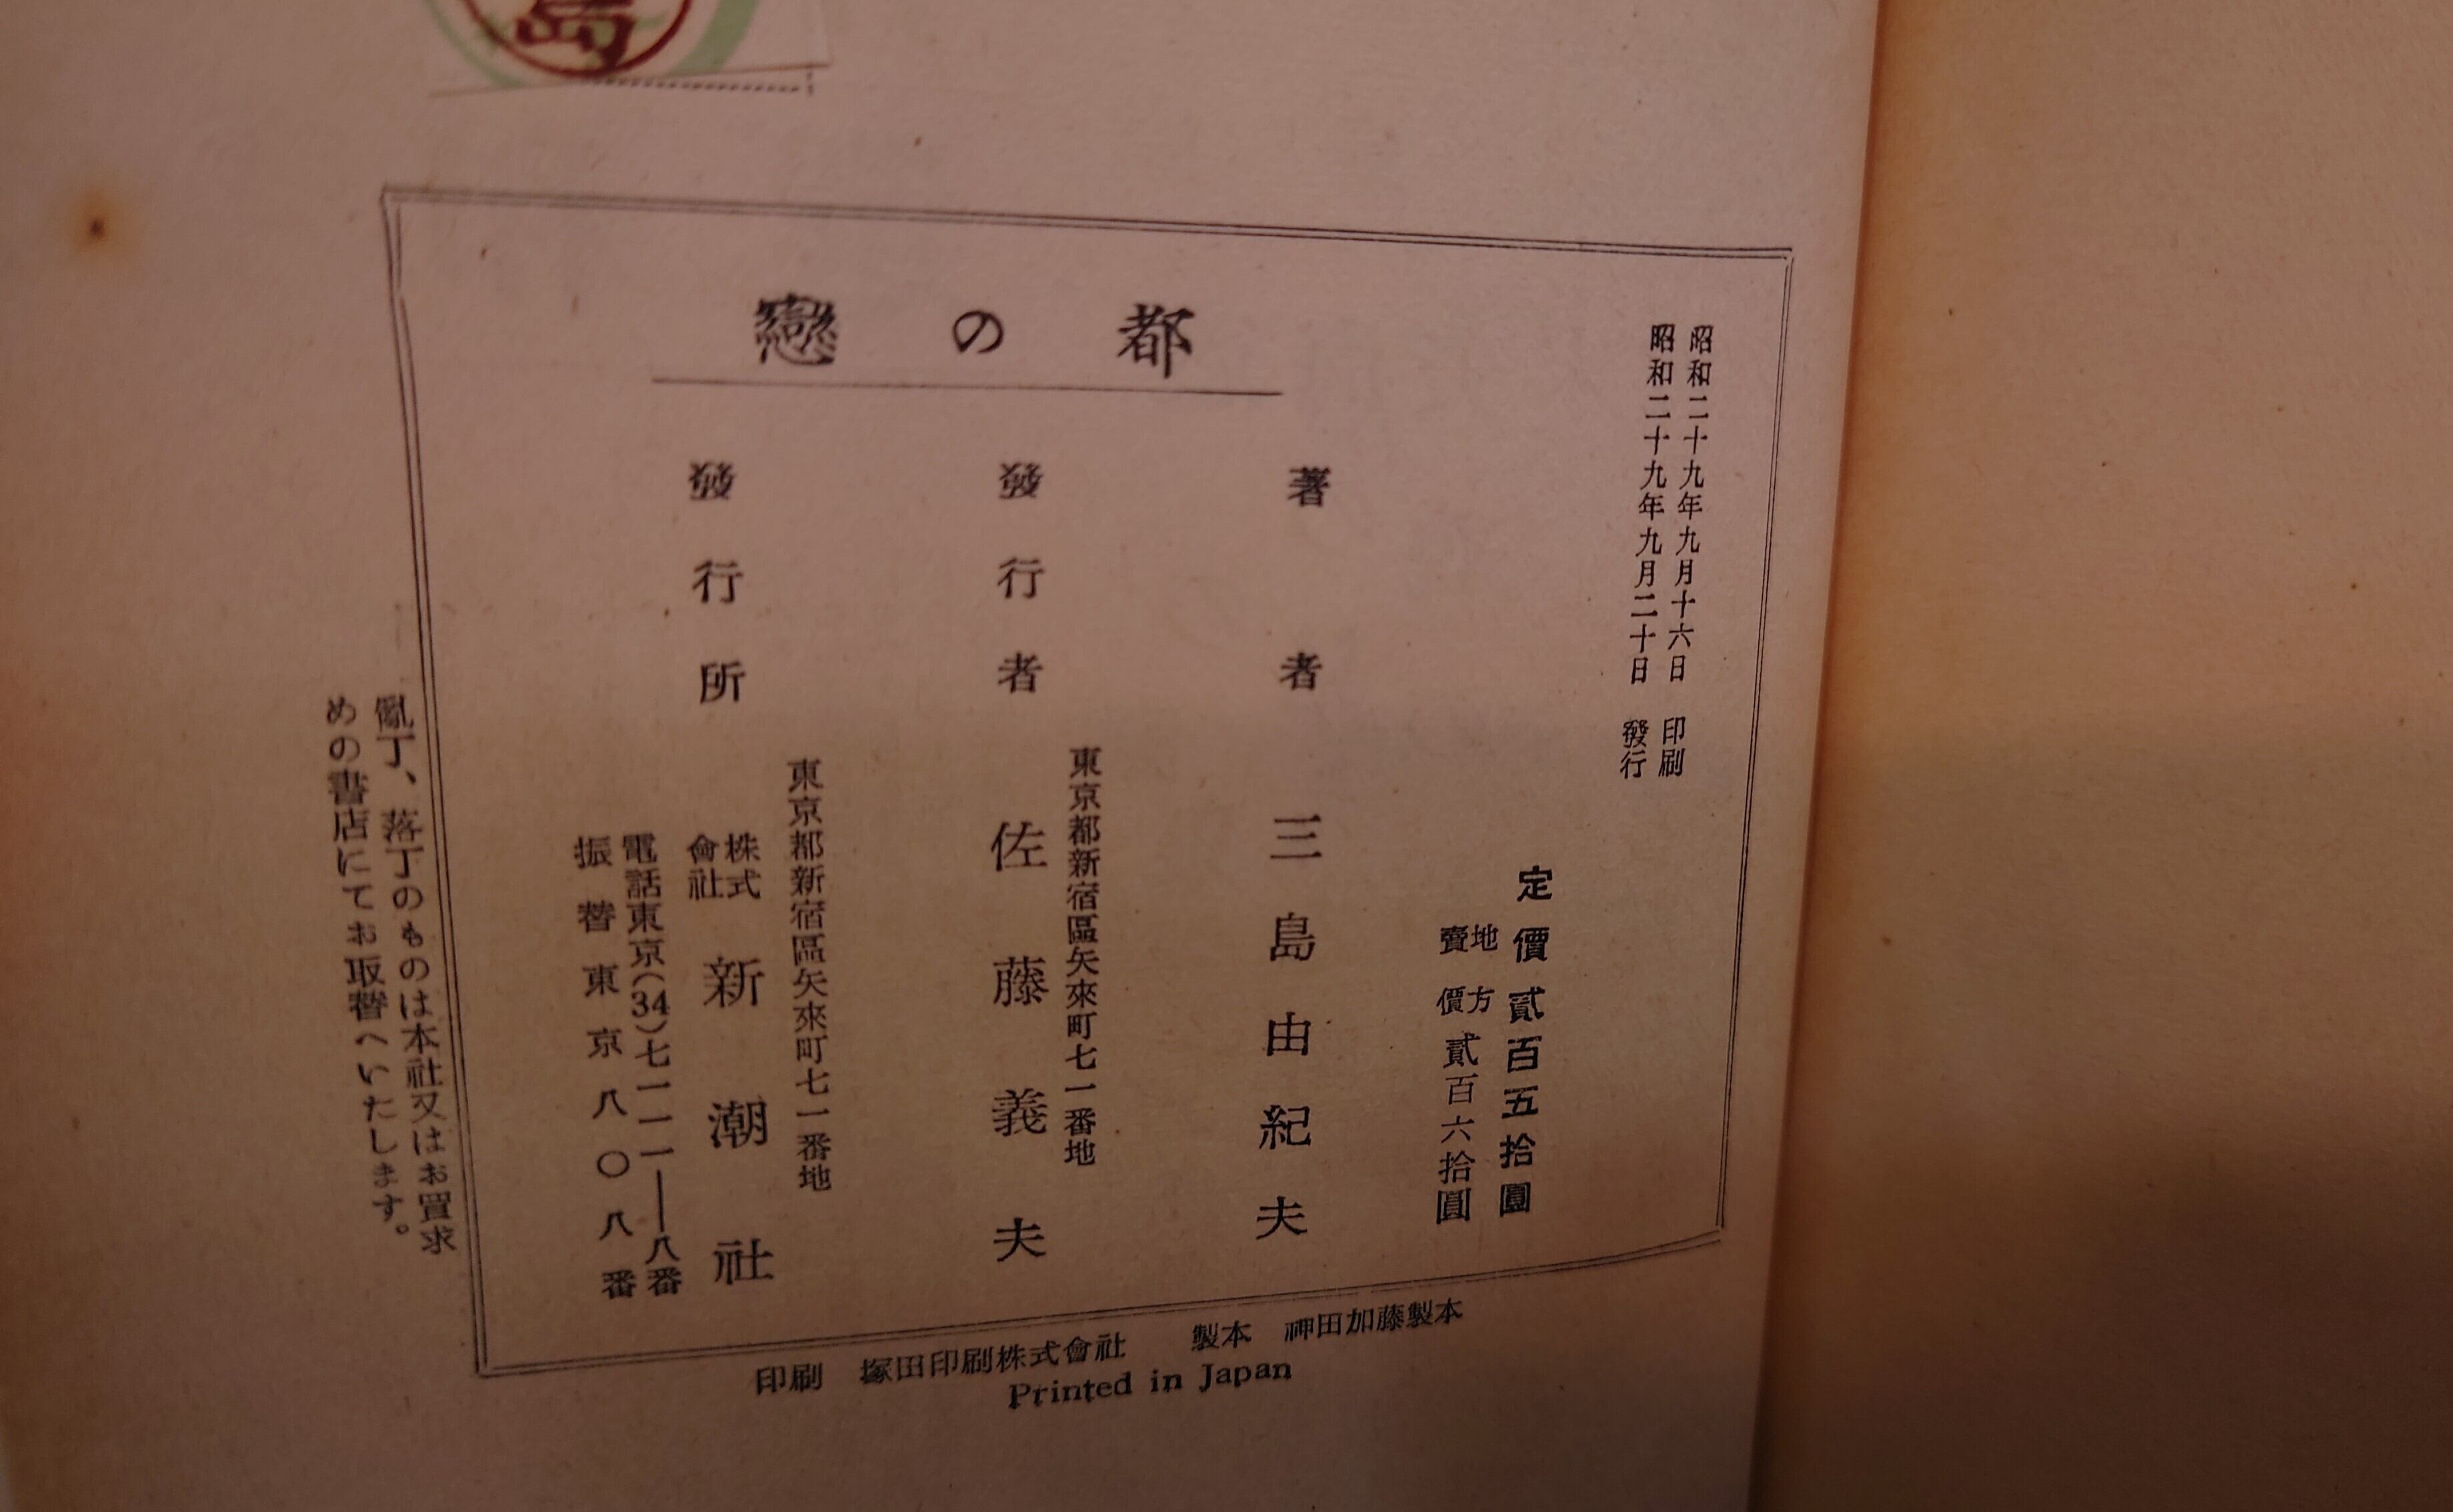 島
戀の都
昭和二十九年九月十六日 印刷
昭和二十九年九月二十日 發行
定價貳百五拾圓
地方賣價貳百六拾圓
著者 三島由紀夫
東京都新宿區矢來町七一番地
發行者 佐藤義夫
東京都新宿區矢來町七一番地
發行所 株式會社 新潮社
電話東京(34)七一一一―八番
振替東京八〇八番
亂丁、落丁のものは本社又はお買求
めの書店にてお取替へいたします。
印刷 塚田印刷株式會社 製本 神田加藤製本
Printed in Japan